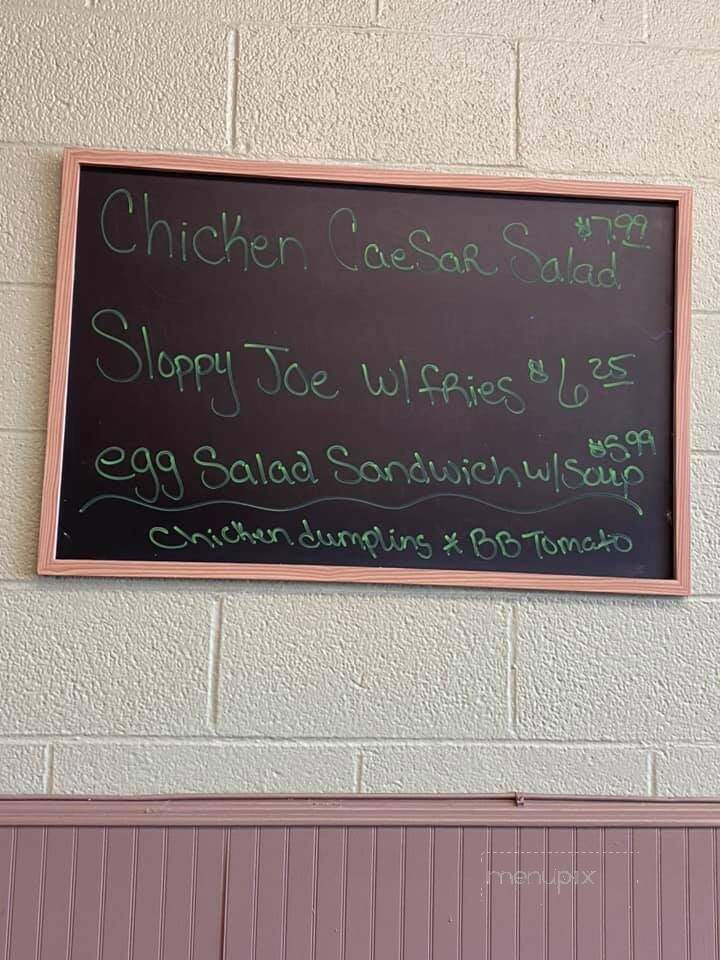 Chicken Caesar Salad $7.99
Sloppy Joe w/fries $6.25
egg Salad Sandwich w/Soup $5.99
chicken dumplins * BB Tomato
menupix